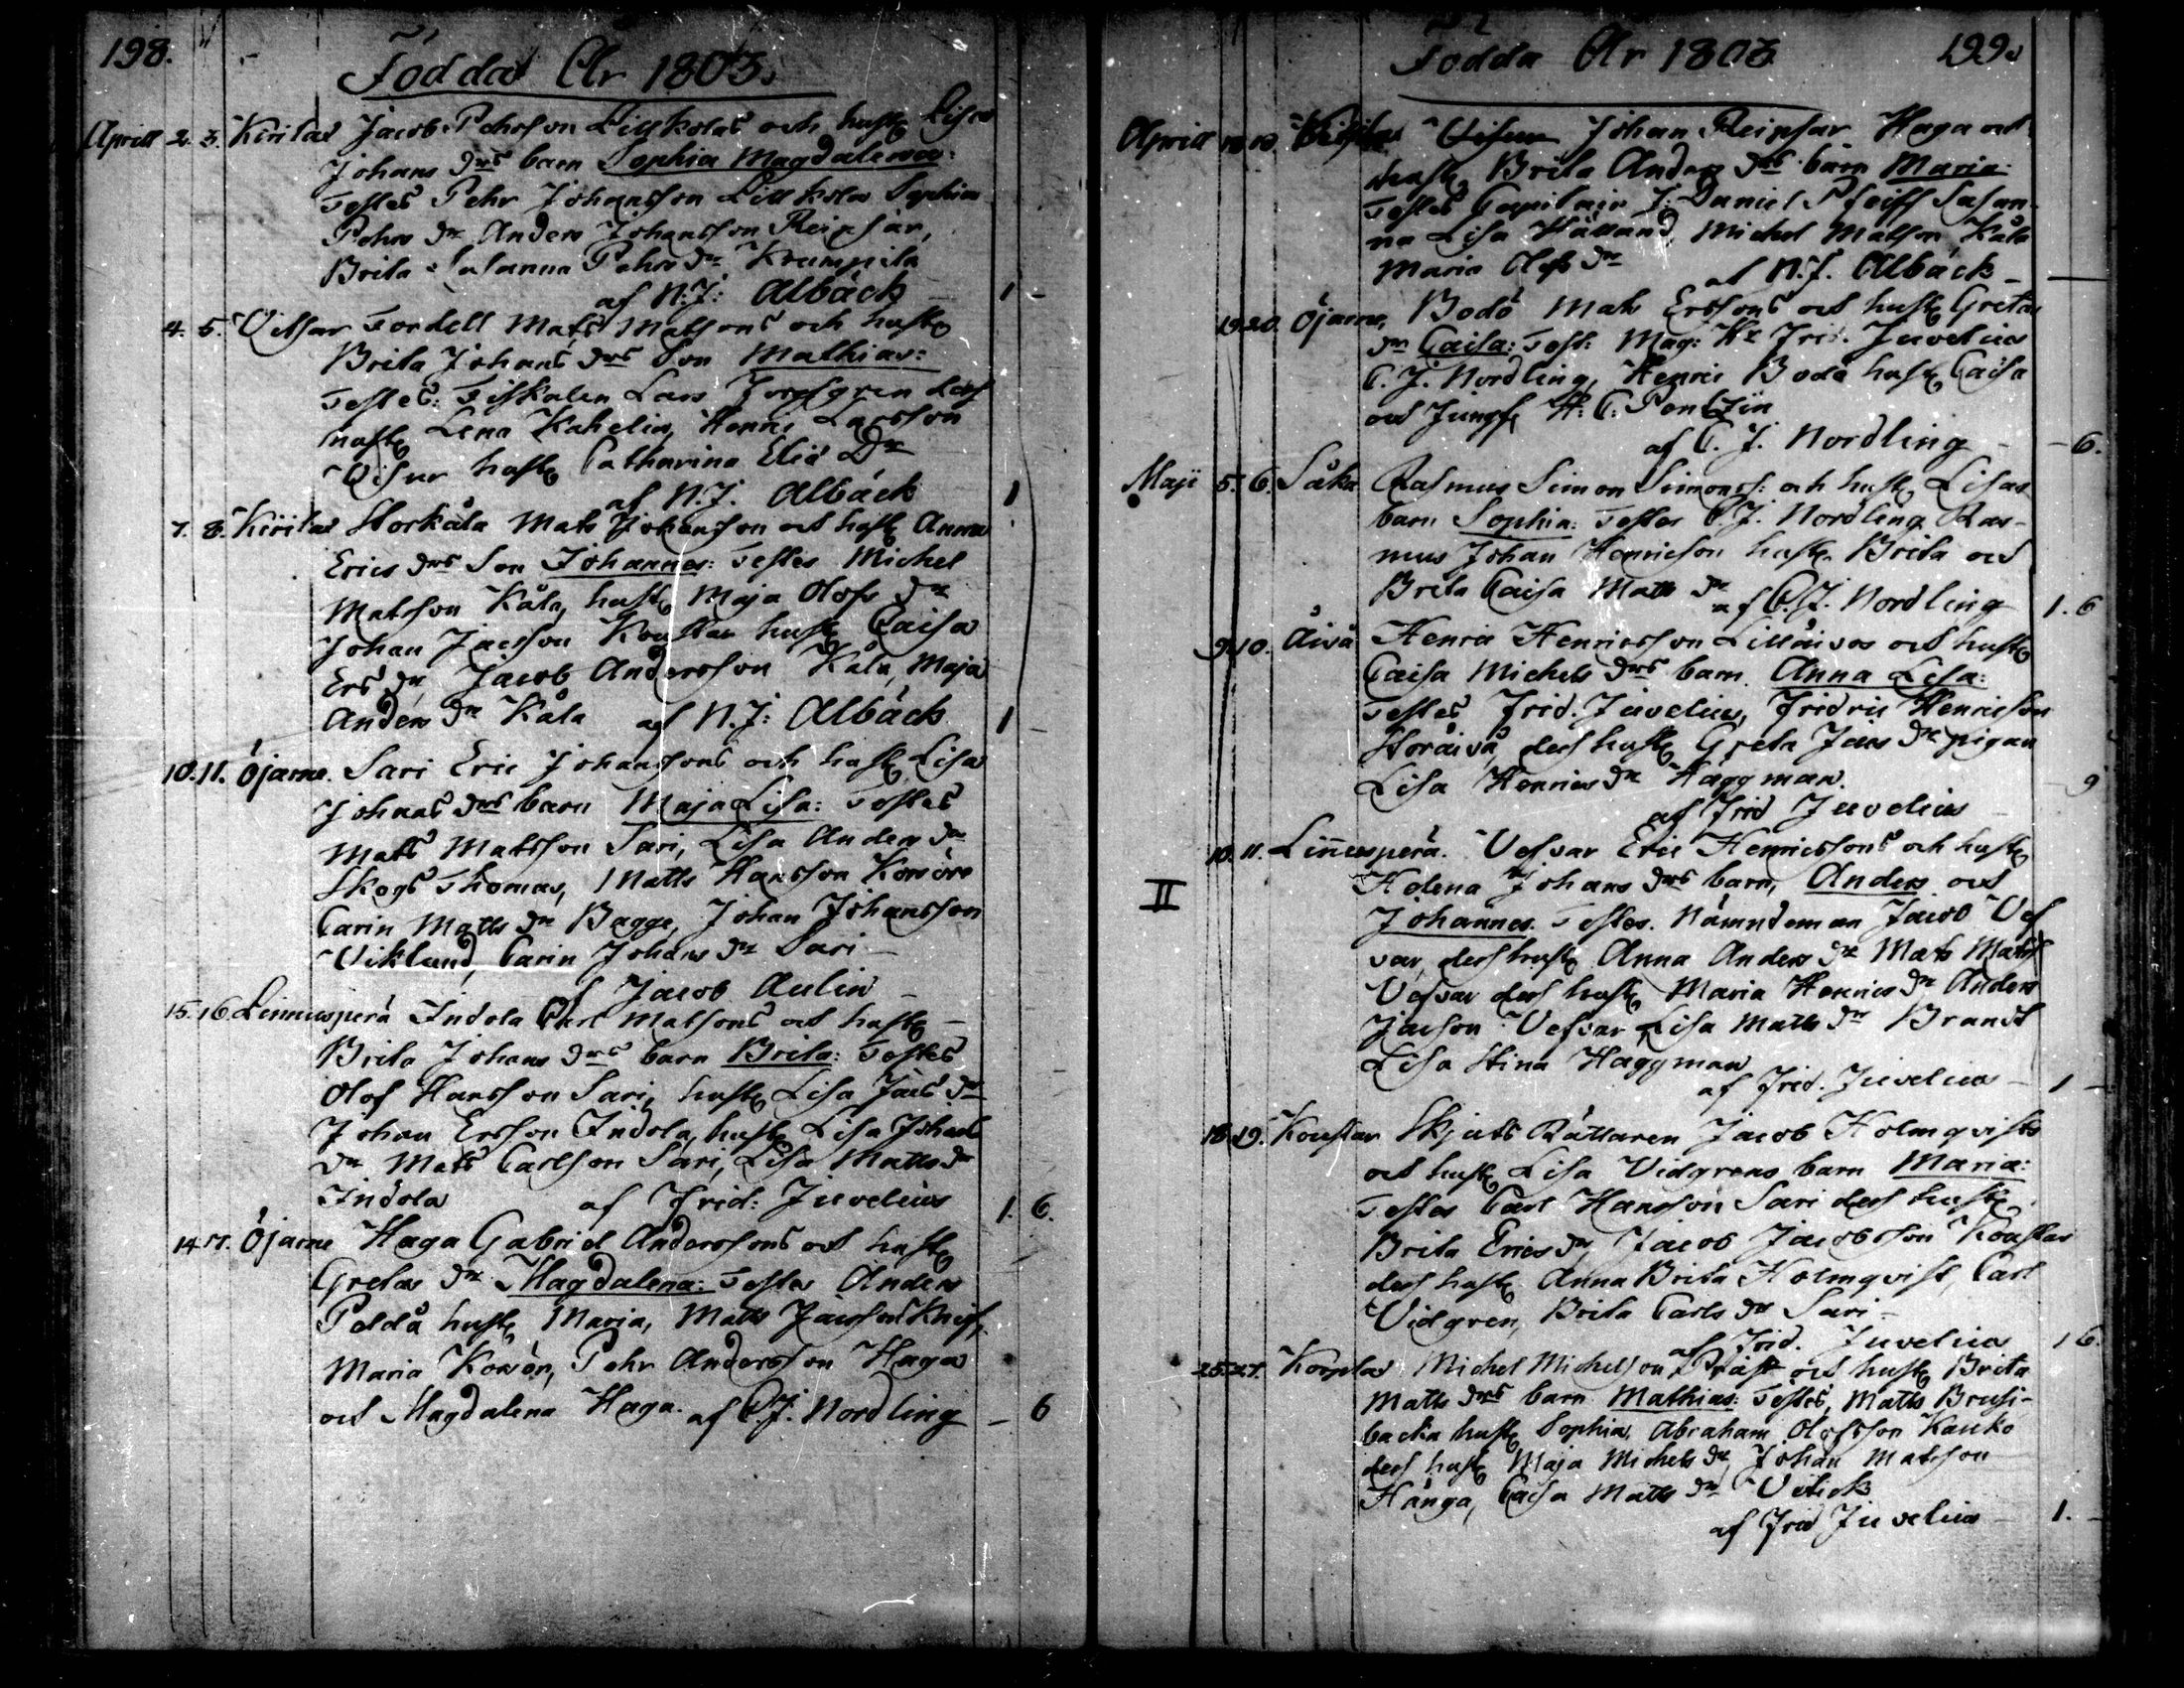 198.
Födda År 1803.
Aprill 2. 3. Kirilax Jacob Pehrsson Lillkolas och hust. Lisas
Johans drs barn Sophia Magdalena:
Testes Pehr Johansson Lillkola Sophia
Pehrs dr Anders Johansson Reipsar,
Brita Susanna Pehrs dr Krumpila
af N: J: Albäck 1 -
4. 5. Vitsar Fordell Mats Matsons och hust.
Brita Johans drs Son Mathias:
Testes: Fiskalen Lars Forsgren des
hust. Lena Kahelin, Henric Larsson
hust. Catharina Elis Dr
af N. J. Albäck 1
7. 8. Kirilax Storkåla Mats Johansson och hust. Anna
Erics drs Son Johannes: Testes Michel
Matsson Kåla, hust. Maja Olofs dr
Johan Jacsson Koustar hust. Caisa
Ers dr, Jacob Andersson Kåla, Maja
Anders dr Kåla af N. J: Albäck 1
10. 11. Öjarne. Sari Eric Johanssons och hust. Lisa
Johans drs barn Maja Lisa: Testes
Matts Matsson Sari, Lisa Anders dr
Skogs Thomas, Matts Hansson Korsöre
Carin Matts dr Bagge, Johan Johansson
Viklund, Carin Johans dr Sari
af Jacob Aulin
15. 16. Linnusperä Indola Carl Matsons och hust.
Brita Johans drs barn Brita: Testes
Olof Hansson Sari, hust. Lisa Jacs dr
Johan Ersson Indola, hust. Lisa Johans
dr Mats Carlson Sari, Lisa Matts dr
Indola af Frid: Juvelius 1. 6.
14. 17. Öjarne Haga Gabriel Anderssons och hust.
Gretas dr Magdalena: Testes Anders
Paldå hust. Maria, Matts Jacsson Knif,
Maria Korsör, Pehr Andersson Haga
och Magdalena Haga. af C. J. Nordling - 6
Födda År 1803 199.
Aprill Johan Reipsar Haga och
hust. Brita Anders drs barn Maria:
Testes Capitain J: Daniel Pfeiff Susan-
na Lisa Hälland, Michel Matson Kåla
Maria Olofs dr af N. J. Albäck -
19. 20. Öjarne, Bodö Mats Erssons och hust. Gretas
dr Caisa: Test: Mag: Hr Frid. Juvelius
C. J. Nordling, Henric Bodö hust. Caisa
och Jungf. H: C: Pontzin
af C. J. Nordling - 6.
Maji 5. 6. Såka Rasmus Simon Simonss: och hust. Lisas
barn Sophia: Testes C. J. Nordling Ras-
mus Johan Henricson hust. Brita och
Brita Caisa Matts dr
af C. J. Nordling 1. 6
9. 10. Åivå Henric Henricsson Lillåivos och hust.
Caisa Michels drs barn. Anna Lisa:
Testes Frid. Juvelius, Fridric Henricson
Storåivå, dess hust. Greta Jacs dr pigan
Lisa Henrics dr Häggman. - 9
af Frid Juvelius
10. 11. Linnusperä. Vesvar Eric Henricssons och hust.
II
Helena Johans drs barn, Anders och
Johannes. Testes. Nämndeman Jacob Ves
var, dess hust. Anna Anders dr Mats Mats
Vesvar dess hust. Maria Henrics dr Anders
Jacson Vesvar, Lisa Matts dr Brandt
Lisa Stina Häggman
af Frid. Juvelius - 1 -
18. 19. Koustar Skjuts Rättaren Jacob Holmqvists
och hust. Lisa Vidgrens barn Maria:
Testes Carl Hansson Sari dess hust.
Brita Erics dr, Jacob Jacobsson Koustar
dess hust. Anna Brita Holmqvist, Carl
Vidgren, Brita Carls dr Sari
af Frid. Juvelius 1 6.
25. 27. Michel Michelson Präst och hust. Brita
Matts drs barn Mathias: Testes, Matts Brusi-
backa hust. Sophia, Abraham Olofsson Kauko
dess hust. Maja Michels dr, Johan Matsson
Hänga, Caisa Matts dr Vitick
af Frid Juvelius 1. -